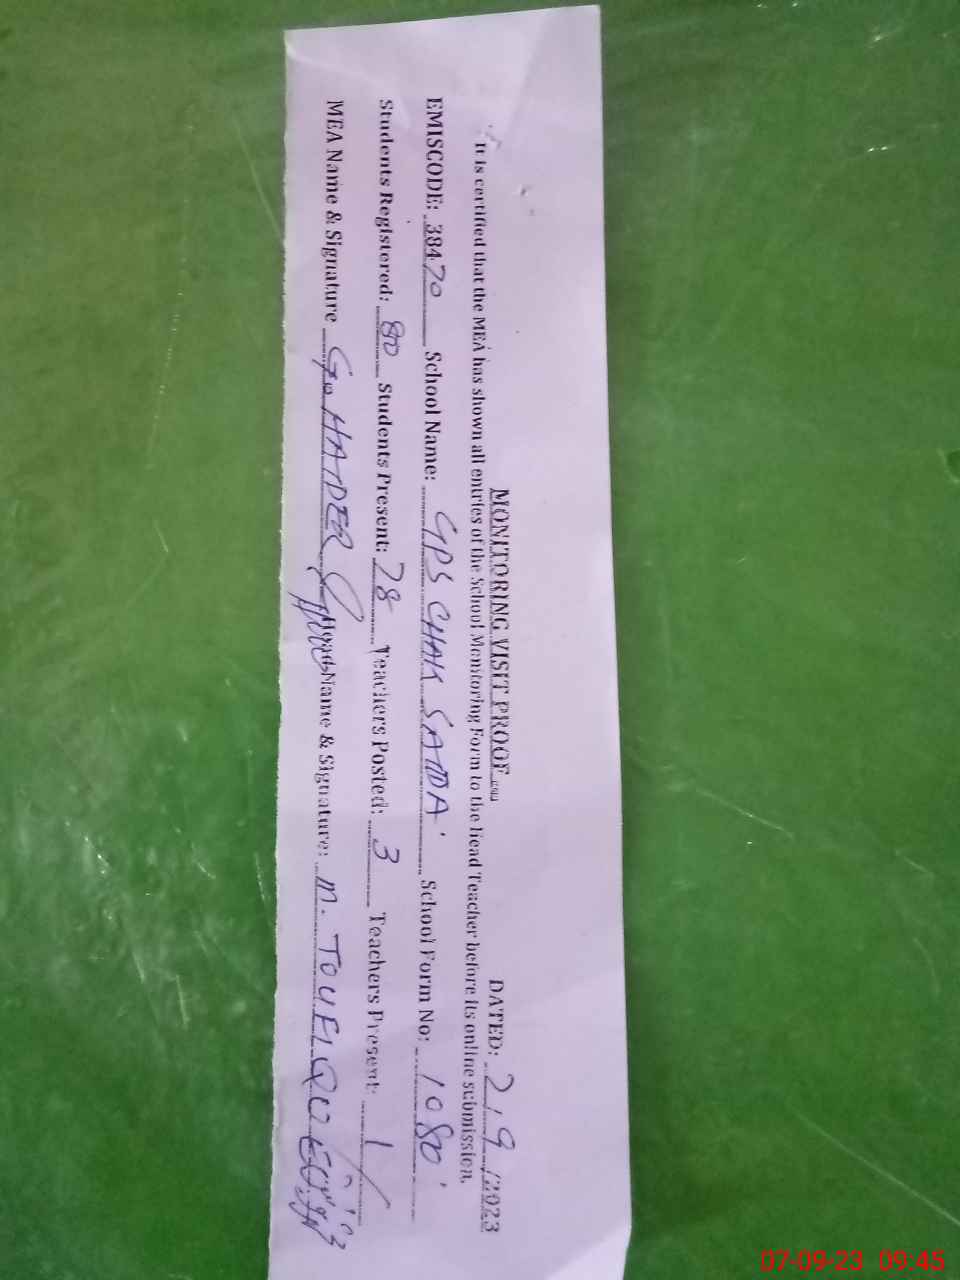 MONITORING VISIT PROOF DATED: 2/9/2023
It is certified that the MEA has shown all entries of the School Monitoring Form to the Head Teacher before its online submission.
EMISCODE: 38470 School Name: GPS CHAK SAIDA School Form No: 1080
Students Registered: 80 Students Present: 28 Teachers Posted: 3 Teachers Present: 1
MEA Name & Signature G. HAIDER Head Name & Signature: M. TOUFIQ
07-09-23 09:45